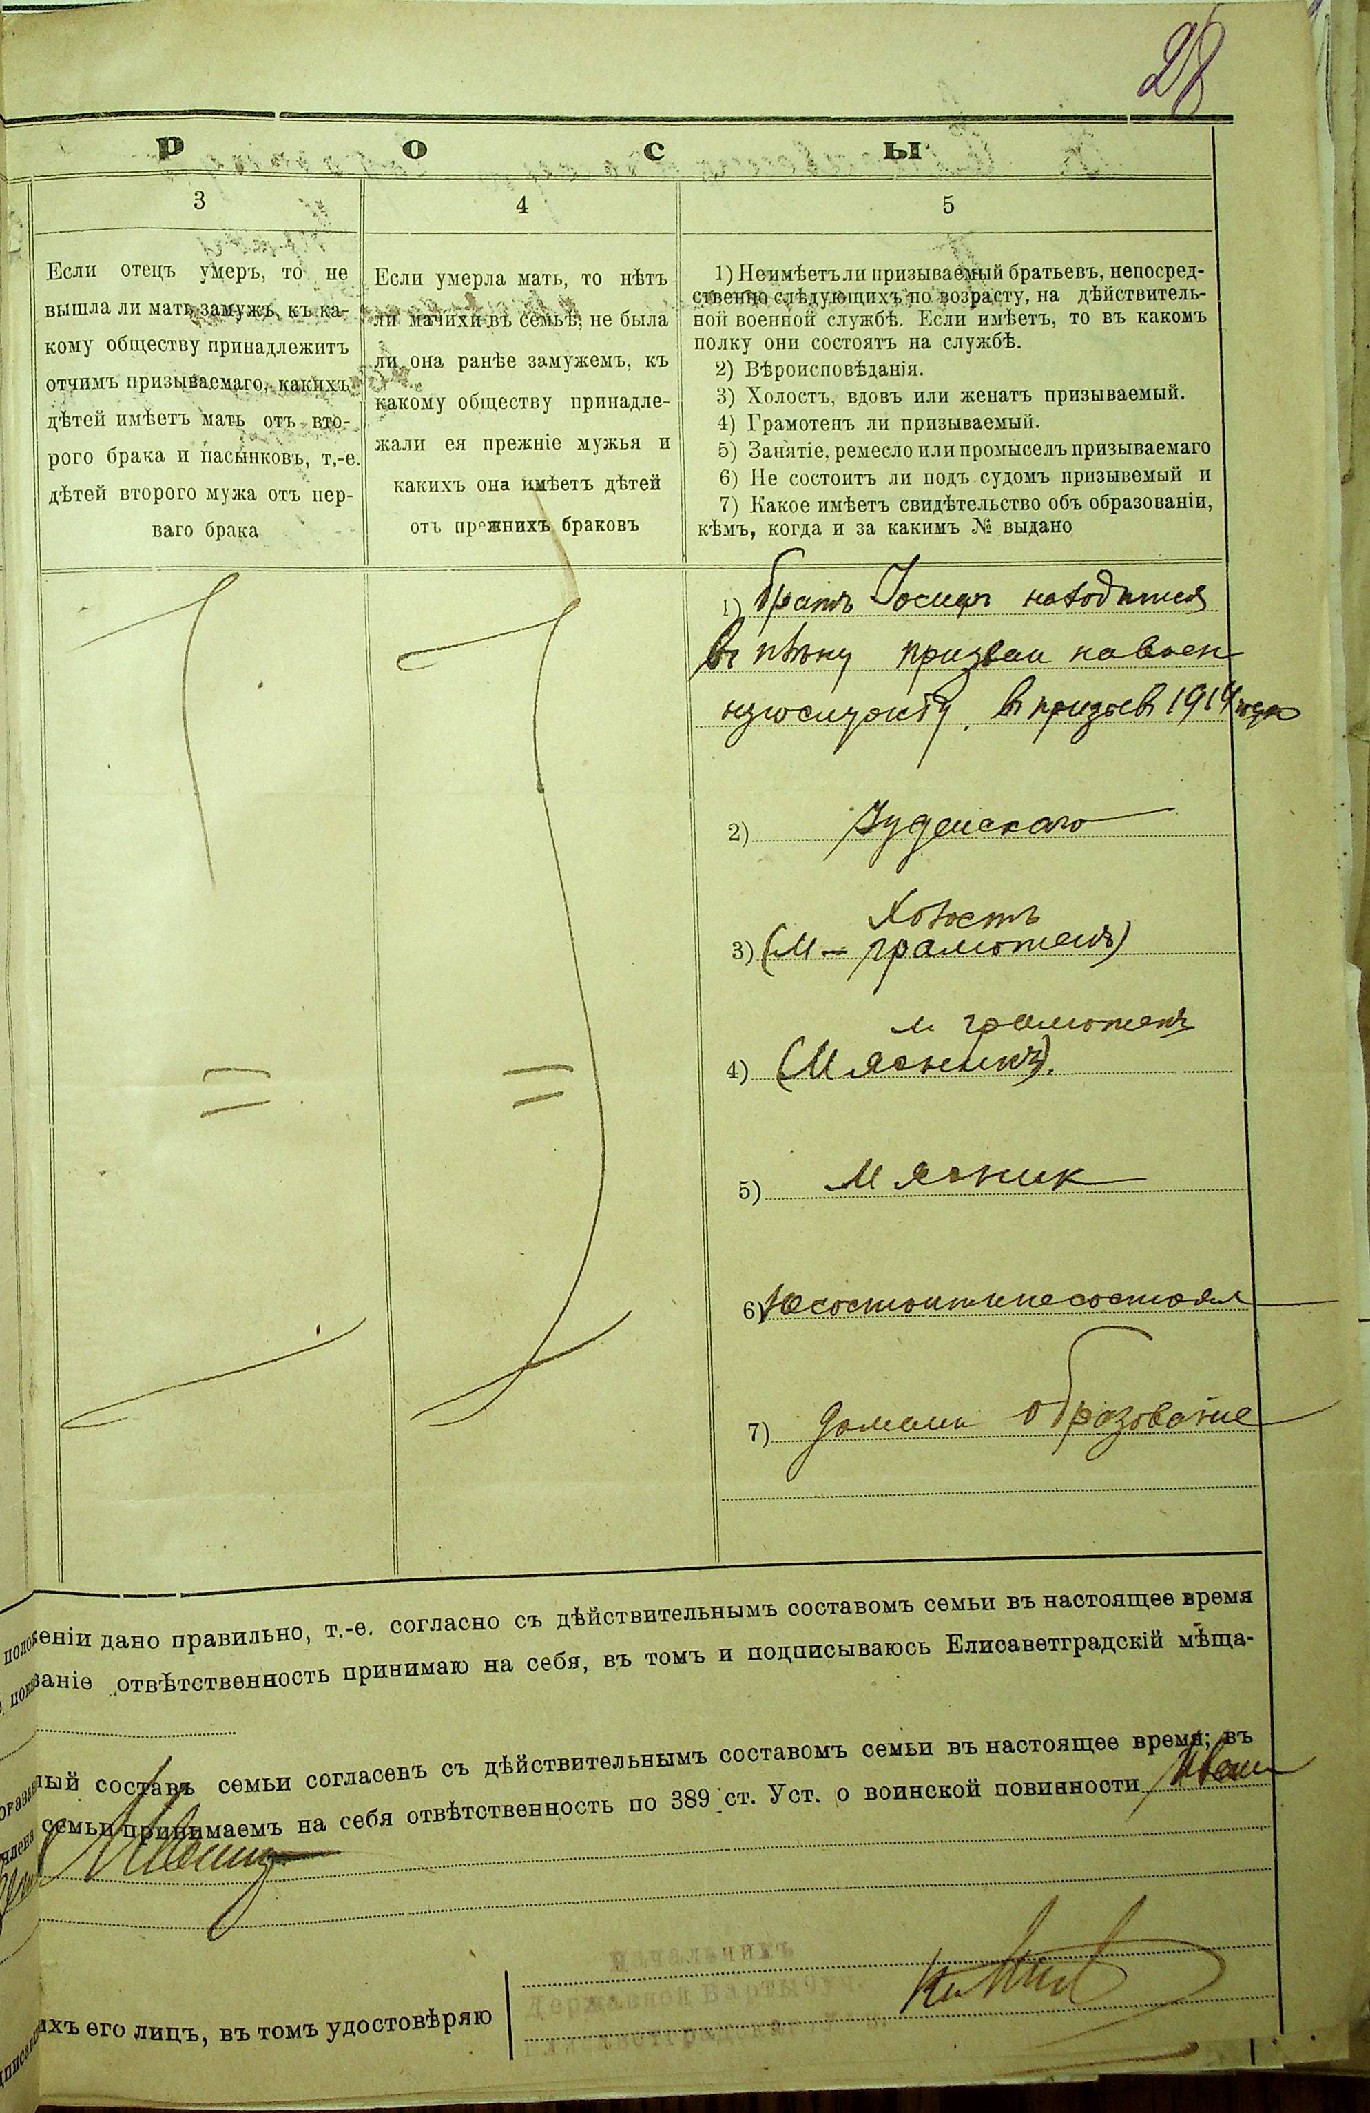 28
Р О С Ы
3
4
5
Если отецъ умеръ, то не
вышла ли мать замужъ, къ ка-
кому обществу принадлежитъ
отчимъ призываемаго, какихъ
дѣтей имѣетъ мать отъ вто-
рого брака и пасынковъ, т.-е.
дѣтей второго мужа отъ пер-
ваго брака
Если умерла мать, то нѣтъ
ли мачихи въ семьѣ, не была
ли она ранѣе замужемъ, къ
какому обществу принадле-
жали ея прежніе мужья и
какихъ она имѣетъ дѣтей
отъ прежнихъ браковъ
1) Неимѣетъли призываемый братьевъ, непосред-
ственно слѣдующихъ по возрасту, на дѣйствитель-
ной военной службѣ. Если имѣетъ, то въ какомъ
полку они состоятъ на службѣ.
2) Вѣроисповѣданія.
3) Холостъ, вдовъ или женатъ призываемый.
4) Грамотенъ ли призываемый.
5) Занятіе, ремесло или промыселъ призываемаго
6) Не состоитъ ли подъ судомъ призывемый и
7) Какое имѣетъ свидѣтельство объ образованіи,
кѣмъ, когда и за какимъ № выдано
1) братъ Іосифъ находится
в плѣну призван на воен
ную службу. в призыв 1914 года
2) Іудейскаго
Холостъ
3) (М – грамотенъ)
м. грамотенъ
4) (Мясникъ).
5) Мясник
6) Не состоит и не состоял
7) домашн образование
положеніи дано правильно, т.-е. согласно съ дѣйствительнымъ составомъ семьи въ настоящее время
показаніе отвѣтственность принимаю на себя, въ томъ и подписываюсь Елисаветградскій мѣща-
ный составъ семьи согласенъ съ дѣйствительнымъ составомъ семьи въ настоящее время; въ
семьи принимаемъ на себя отвѣтственность по 389 ст. Уст. о воинской повинности
Начальникъ
Державной Варты 2 уч.
ихъ его лицъ, въ томъ удостовѣряю